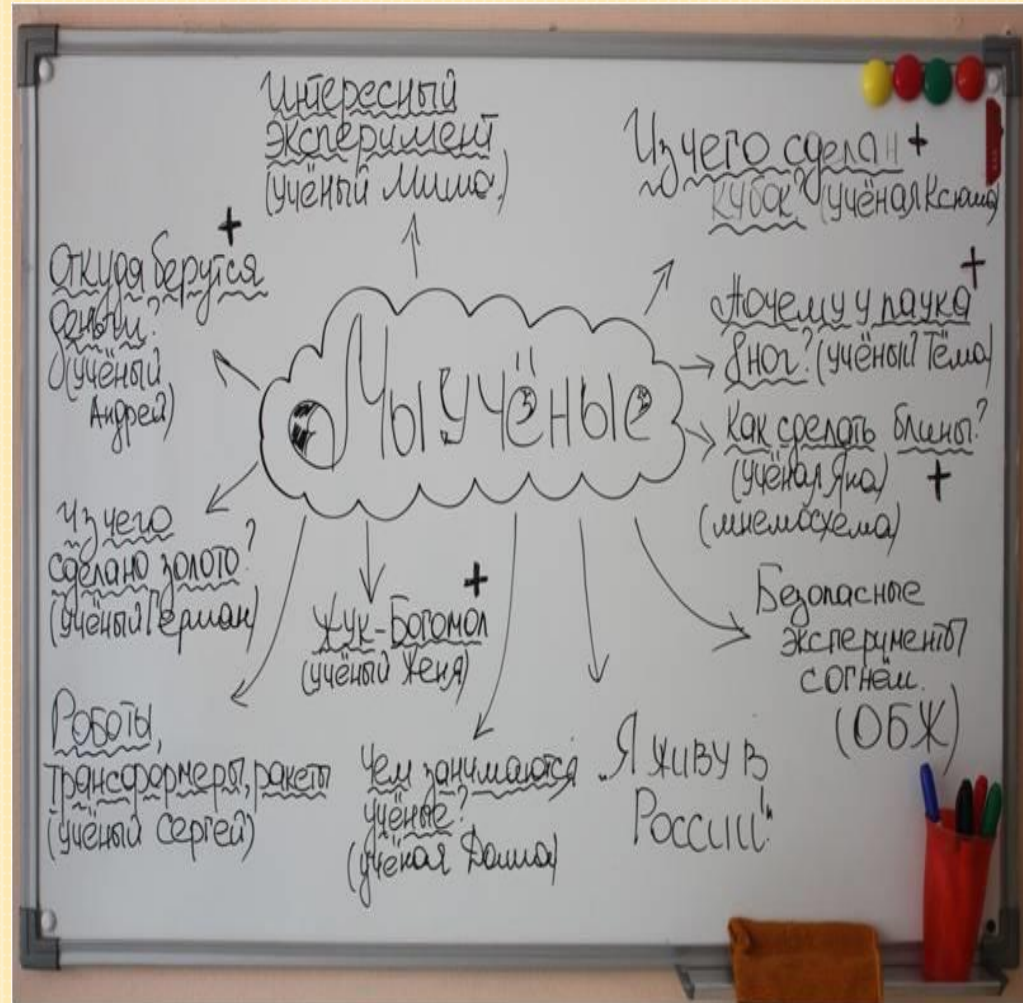 Интересный
эксперимент
(учёный Миша)
Из чего сделан +
кубок? (учёная Ксюша)
+
Откуда берутся
деньги?
(учёный
Андрей)
+
Почему у паука
8 ног? (учёный Тёма)
Мы учёные
Как сделать блины?
(учёная Яна) +
(мнемосхема)
Из чего
сделано золото?
(учёный Герман)
+
Жук-Богомол
(учёный Женя)
Безопасные
эксперименты
с огнём.
(ОБЖ)
Роботы,
трансформеры, ракеты
(учёный Сергей)
Чем занимаются
учёные?
(учёная Даша)
"Я живу в
России"